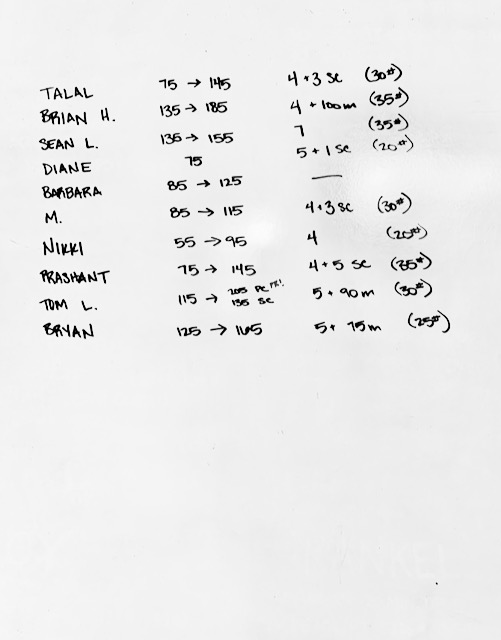 TALAL 75 → 145 4 + 3 SC (30#)
BRIAN H. 135 → 185 4 + 100m (35#)
SEAN L. 135 → 155 7 (35#)
DIANE 75 5 + 1 SC (20#)
BARBARA 85 → 125 —
M. 85 → 115 4+3 SC (30#)
NIKKI 55 → 95 4 (20#)
PRASHANT 75 → 145 4 + 5 SC (35#)
TOM L. 115 → 205 PC PR! 135 SC 5 + 90m (30#)
BRYAN 125 → 165 5 + 75m (25#)